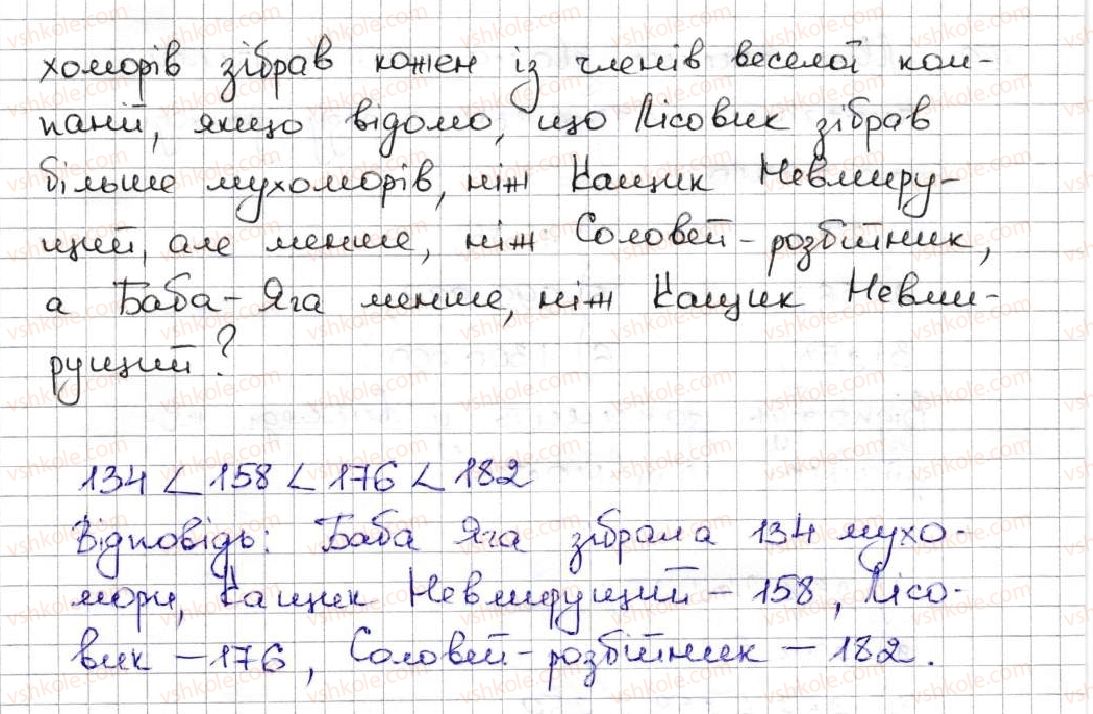 хоморів зібрав кожен із членів веселої ком-
паній, якщо відомо, що Лісовик зібрав
більше мухоморів, ніж Кащик Невмиру-
щий, але менше, ніж Соловей-розбійник,
а Баба-Яга менше, ніж Кащик Невми-
рущий?
134 < 158 < 176 < 182
Відповідь: Баба Яга зібрала 134 мухо-
мори, Кащик Невмирущий - 158, Лісо-
вик - 176, Соловей-розбійник - 182.